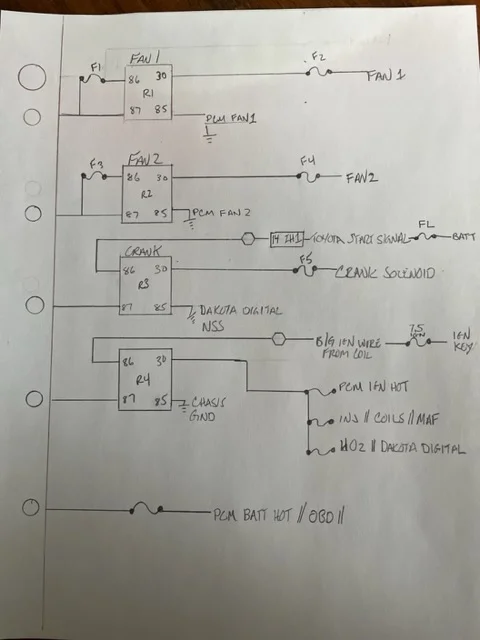 FAN 1
F1
F2
86 30
R1
87 85
FAN 1
PCM FAN1
FAN 2
F3
F4
86 30
R2
87 85
FAN 2
PCM FAN 2
14 IH1
TOYOTA START SIGNAL
FL
BATT
CRANK
86 30
R3
87 85
F5
CRANK SOLENOID
DAKOTA DIGITAL
NSS
B/G IGN WIRE
FROM COIL
7.5
IGN
KEY
86 30
R4
87 85
CHASIS
GND
PCM IGN HOT
INJ // COILS // MAF
HO2 // DAKOTA DIGITAL
PCM BATT HOT // OBD //